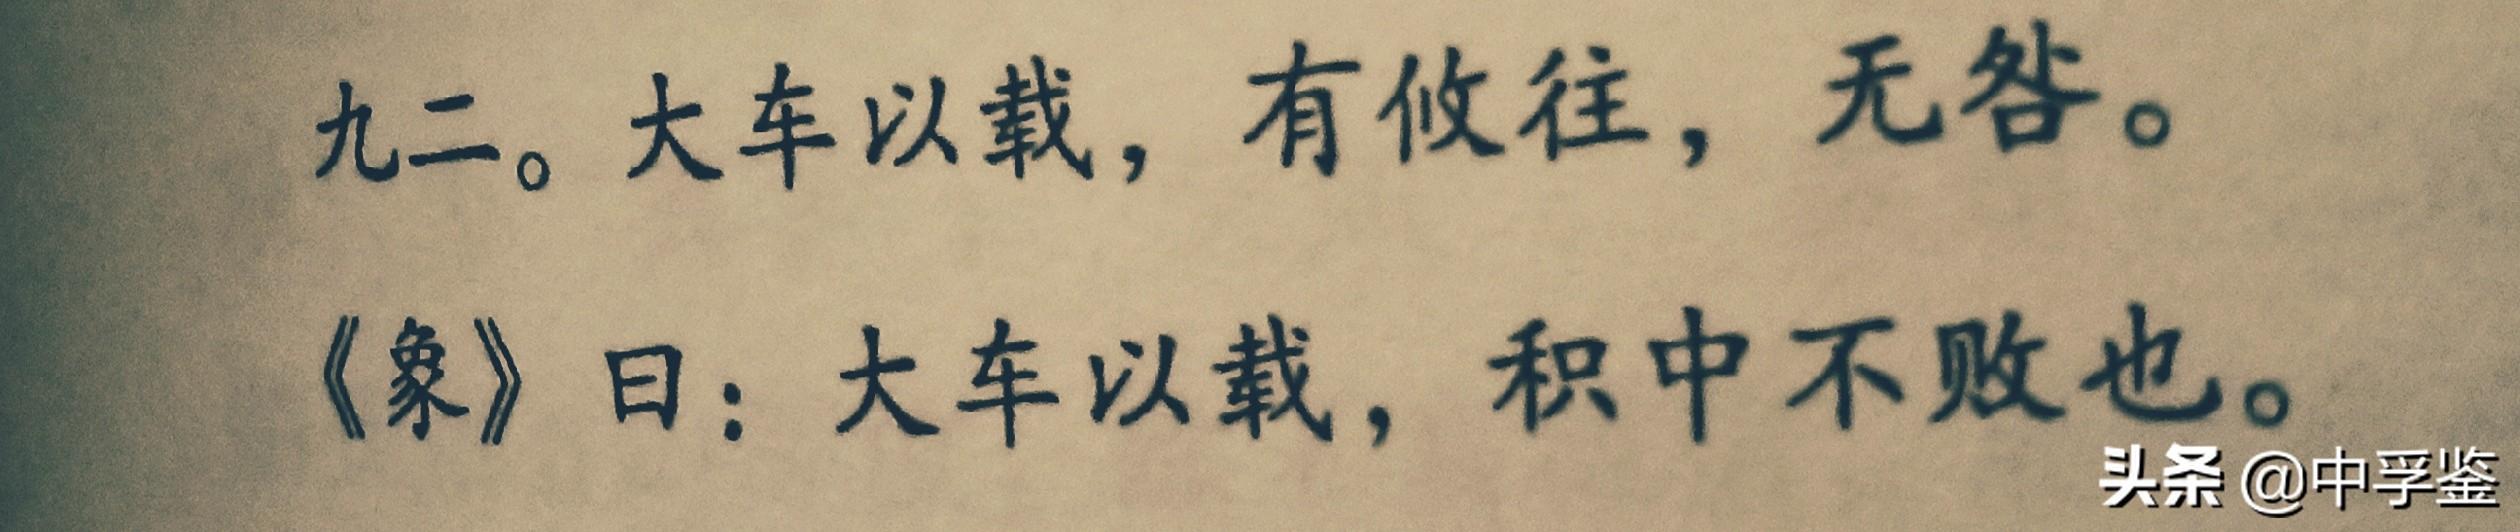 九二。大车以载，有攸往，无咎。
《象》曰：大车以载，积中不败也。
头条 @中孚鉴